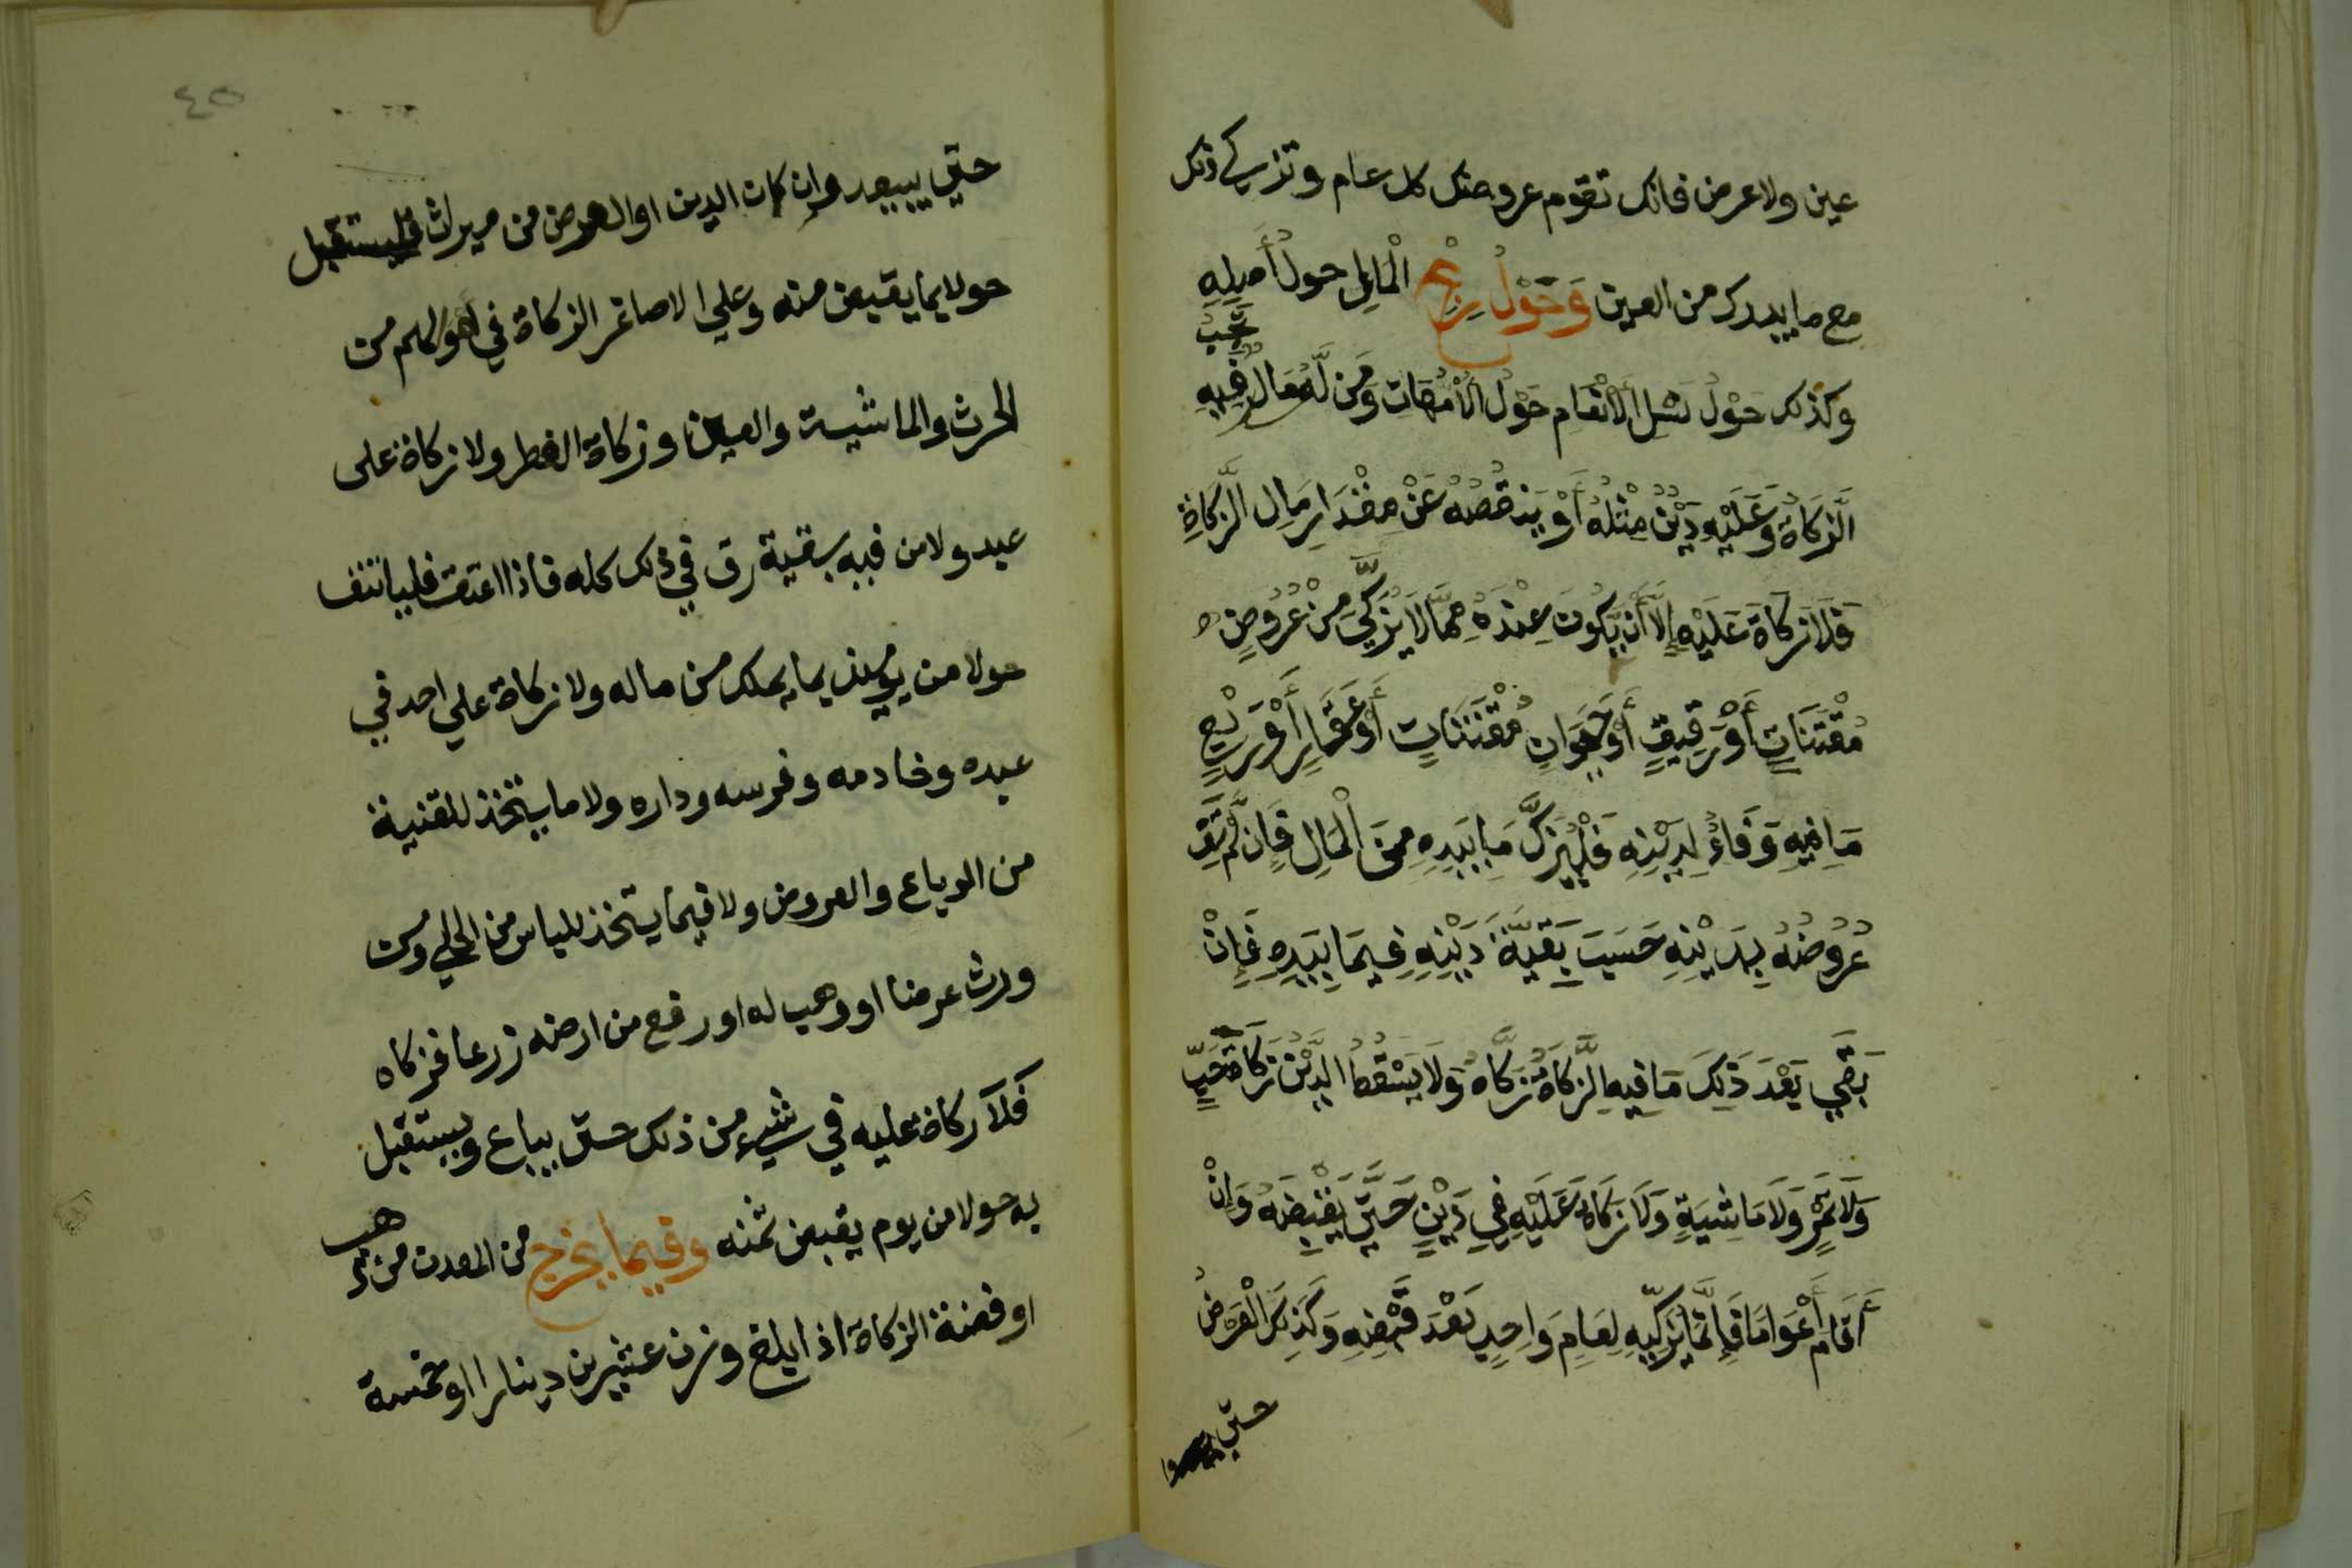 عين ولا عرض فانك تقوم عروضك كل عام وتزكي ذلك
مع ما بيدك من العين وَحَوْلُ رِبْحِ الْمَالِ حولُ أَصِلِهِ
وكذلك حَوْلُ نَسْلِ الْأَنْعَامِ حَوْلُ الْأُمَّهَاتِ وَمَن لَّهُ مَالٌ تَجِبُ فِيهِ
الزَّكَاةُ وَعَلَيْهِ دَيْنٌ مِثْلُهُ أَوْ يَنْقُصُهُ عَنْ مِقْدَارِ مَالِ الزَّكَاةِ
فَلَا زَكَاةَ عَلَيْهِ إِلَّا أَنْ يَكُونَ عِنْدَهُ مِمَّا لَا يُزَكَّى مِنْ عُرُوضٍ
مُقْتَنَاتٍ أَوْ رَقِيقٍ أَوْ حَيَوَانٍ مُقْتَنَاتٍ أَوْ عَقَارٍ أَوْ رَبْعٍ
مَا فِيهِ وَفَاءٌ لِدَيْنِهِ فَلْيُزَكِّ مَا بِيَدِهِ مِنَ الْمَالِ فَإِن لَّمْ تَفِ
عُرُوضُهُ بِدَيْنِهِ حَسَبَ بَقِيَّةَ دَيْنِهِ فِيمَا بِيَدِهِ فَإِنْ
بَقِيَ بَعْدَ ذَلِكَ مَا فِيهِ الزَّكَاةُ زَكَّاهُ وَلَا يُسْقِطُ الدَّيْنُ زَكَاةَ حَبٍّ
وَلَا تَمْرٍ وَلَا مَاشِيَةٍ وَلَا زَكَاةَ عَلَيْهِ فِي دَيْنٍ حَتَّى يَقْبِضَهُ وَإِنْ
أَقَامَ أَعْوَامًا فَإِنَّمَا يُزَكِّيهِ لِعَامٍ وَاحِدٍ بَعْدَ قَبْضِهِ وَكَذَلِكَ الْعَرْضُ
حتى
٤٥
حتى يبيعه وإن كان الدين او العرض من ميراث فليستقبل
حولا بما يقبض منه وعلي الاصاغر الزكاة في اموالهم من
الحرث والماشية والعين وزكاة الفطر ولا زكاة على
عبد ولا من فيه بقية رق في ذلك كله فاذا اعتق فلياتنف
حولا من يومئذ بما يملك من ماله ولا زكاة علي احد في
عبده وخادمه وفرسه وداره ولا ما يتخذ للقنية
من الرباع والعروض ولا فيما يتخذ للباس من الحلي ومن
ورث عرضا او وهب له او رفع من ارضه زرعا فزكاه
فَلَا زكاة عليه في شيء من ذلك حتى يباع ويستقبل
به حولا من يوم يقبض ثمنه وفيما يخرج من المعدن من ذهب
او فضة الزكاة اذا بلغ وزن عشرين دينارا او خمسة